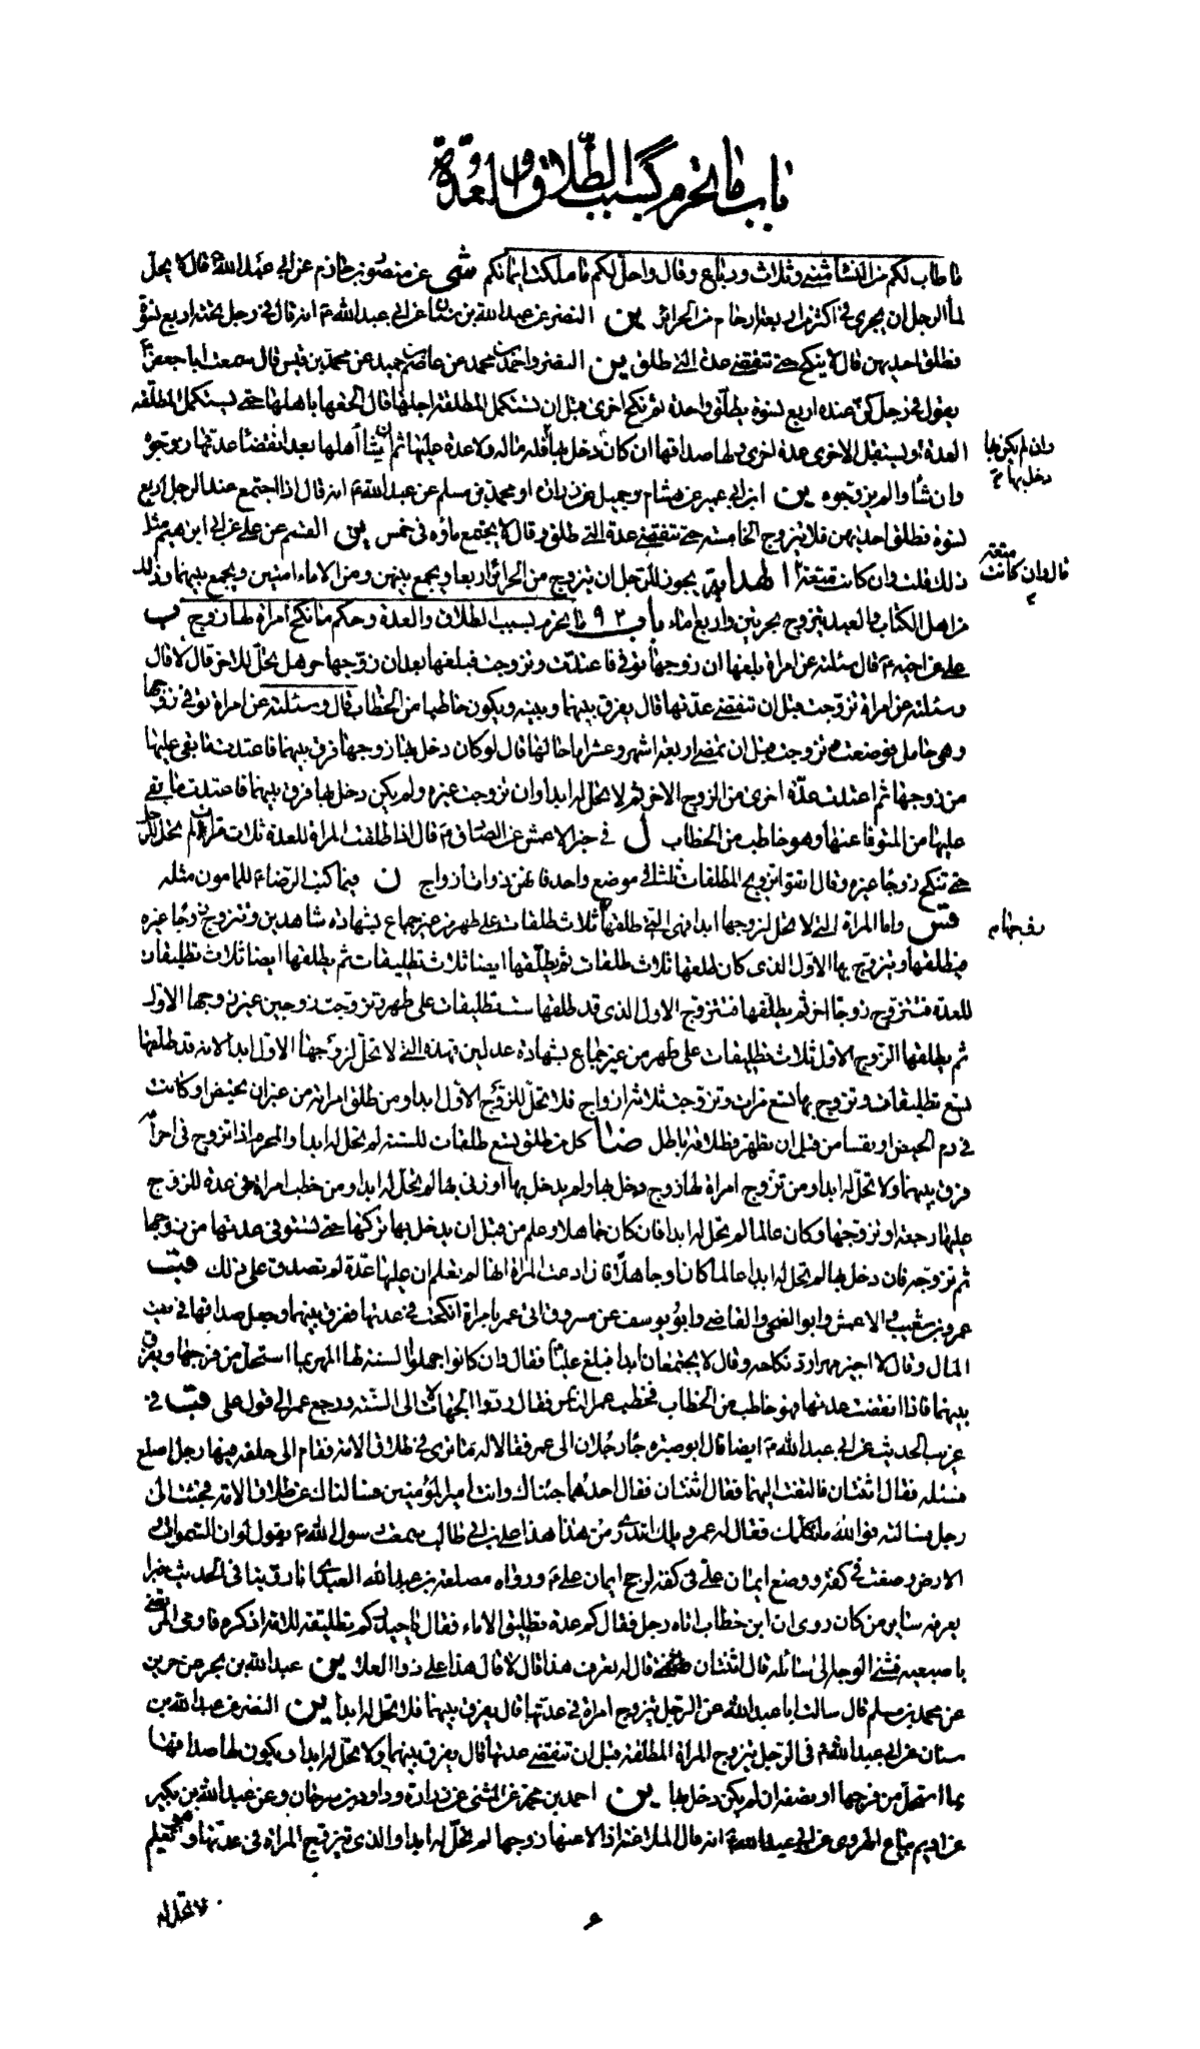 باب ما تحرم بسبب الطلاق والعدة
ما طاب لكم من النساء مثنى وثلاث ورباع وقال واحل لكم ما ملكت ايمانكم شى عن منصور بن حازم عن ابي عبد الله قال لا يحل
لماء الرجل ان يجرى في اكثر من اربعة ارحام من الحرائر ين النضر عن عبد الله بن سنان عن ابي عبد الله ع انه قال في رجل تحته اربع نسوة
فطلق احديهن قال لا ينكح حتى تنقضي عدة التي طلق ين النضر واحمد بن محمد عن عاصم بن حميد عن محمد بن قيس قال سمعت ابا جعفر ع
يقول في رجل كن عنده اربع نسوة يطلق واحدة ثم نكح اخرى قبل ان تستكمل المطلقة اجلها قال الحقها باهلها حتى تستكمل المطلقة
العدة وتستقبل الاخرى عدة اخرى ولها صداقها ان كان دخل بها فله ماله ولا عدة عليها ثم ان شاء اهلها بعد انقضاء عدتها زوجوه
وان لم يكن بها
دخل بها
وان شاؤا لم يزوجوه ين ابن ابي عمير عن هشام وجميل عن زرارة او محمد بن مسلم عن عبد الله ع انه قال اذا اجتمع عند الرجل اربع
نسوة فطلق احديهن فلا يتزوج الخامسة حتى تنقضي عدة التي طلق وقال لا يجتمع ماؤه في خمس ين القسم عن علي عن ابي ابرهيم مثل
ذلك قلت وان كانت متعة الهداية يجوز للرجل ان يتزوج من الحرائر اربعا ويجمع بينهن ومن الاماء امتين ويجمع بينهما وذلك
قال وان كانت متعة
من اهل الكتاب والعبد يتزوج بحرتين واربع اماء باب ٩٢ ما تحرم بسبب الطلاق والعدة وحكم من نكح امراة لها زوج ب
علي عن اخيه ع قال سئلته عن امراة بلغها ان زوجها توفي فاعتدت وتزوجت فبلغها بعد ان زوجها حي هل تحل للاخر قال لا قال
وسئلته عن امراة تزوجت قبل ان تنقضي عدتها قال يفرق بينهما وبينه ويكون خاطبا من الخطاب قال وسئلته عن امراة توفي زوجها
وهي حامل فوضعت وتزوجت قبل ان تمضي اربعة اشهر وعشرا ما حالها قال لو كان دخل بها زوجها فرق بينهما فاعتدت ما بقي عليها
من زوجها ثم اعتدت عدة اخرى من الزوج الاخر ثم لا تحل له ابدا وان تزوجت غيره ولم يكن دخل بها فرق بينهما فاعتدت ما بقي
عليها من المتوفا عنها وهو خاطب من الخطاب ل في خبر الاعمش عن الصادق ع قال اذا طلقت المراة للعدة ثلاث مرات لم تحل للرجل
حتى تنكح زوجا غيره وقال اتقوا تزويج المطلقات ثلثا في موضع واحد فانهن ذوات ازواج ن فيما كتب الرضاء للمامون مثله
قس واما المراة التي لا تحل لزوجها ابدا فهي التي طلقها ثلاث طلقات على طهر من غير جماع بشهادة شاهدين وتتزوج زوجا غيره
فيطلقها ويتزوج بها الاول الذى كان طلقها ثلاث طلقات ثم يطلقها ايضا ثلاث تطليقات ثم يطلقها ايضا ثلاث تطليقات
للعدة فتتزوج زوجا اخر ثم يطلقها فتتزوج الاول الذى قد طلقها ست تطليقات على طهر وتزوجت زوجين غير زوجها الاول
ثم يطلقها الزوج الاول ثلاث تطليقات على طهر من غير جماع بشهادة عدلين فهذه التي لا تحل لزوجها الاول ابدا لانه قد طلقها
تسع تطليقات وتزوج بها تسع مرات وتزوجت ثلاثة ازواج فلا تحل للزوج الاول ابدا ومن طلق امراته من غير ان تحيض او كانت
في دم الحيض او نفساء من قبل ان تطهر فطلاقه باطل ضا كل من طلق تسع طلقات للسنة لم تحل له ابدا والمحرم اذا تزوج في احرامه
فرق بينهما ولا تحل له ابدا ومن تزوج امراة لها زوج دخل بها ولم يدخل بها او زنى بها لم تحل له ابدا ومن خطب امراة في عدة للزوج
عليها رجعة او تزوجها وكان عالما لم تحل له ابدا فان كان جاهلا وعلم من قبل ان يدخل بها تركها حتى تستوفى عدتها من زوجها
ثم تزوجه فان دخل بها لم تحل له ابدا عالما كان او جاهلا فان ادعت المراة انها لم تعلم ان عليها عدة لم تصدق على ذلك قب
عمرو بن شعيب والاعمش وابو الضحى والقاضي وابو يوسف عن مسروق اتى عمر بامراة انكحت في عدتها ففرق بينهما وجعل صداقها في بيت
المال وقال لا اجيز مهرا رد نكاحه وقال لا يجتمعان ابدا فبلغ عليا فقال وان كانوا جهلوا السنة لها المهر بما استحل من فرجها ويفرق
بينهما فاذا انقضت عدتها فهو خاطب من الخطاب فخطب عمر الناس فقال ردوا الجهالات الى السنة ورجع عمر الى قول علي قب في
غريب الحديث عن ابي عبد الله ع ايضا قال ابو صبرة جاء رجلان الى عمر فقالا له ما ترى في طلاق الامة فقام الى حلقة فيها رجل اصلع
فسئله فقال اثنتان فالتفت اليهما فقال اثنتان فقال احدهما جئناك وانت امير المؤمنين فسالناك عن طلاق الامة فجئت الى
رجل فسالته فوالله ما كلمك فقال له عمر ويلك اتدرى من هذا هذا علي بن ابي طالب سمعت رسول الله ص يقول لو ان السموات و
الارض وضعت في كفة ووضع ايمان علي في كفة لرجح ايمان علي ع ورواه مصقلة بن عبد الله العبدي انا روينا في الحديث خبرا
يعرفه سائر من كان روى ان ابن خطاب اتاه رجل فقال كم عدة تطليق الاماء فقال يا حيدر كم تطليقة للامة اذكره فاومى المرتضى
باصبعيه فثنى الوجه الى سائله قال اثنتان قال له تعرف هذا قال لا قال هذا علي ذو العلا ين عبد الله بن بحر عن حريز
عن محمد بن مسلم قال سالت ابا عبد الله عن الرجل يتزوج امراة في عدتها قال يفرق بينهما فلا تحل له ابدا ين النضر عن عبد الله بن
سنان عن ابي عبد الله ع في الرجل يتزوج المراة المطلقة قبل ان تنقضي عدتها قال يفرق بينهما ولا تحل له ابدا ويكون لها صداقها
بما استحل من فرجها او نصفه ان لم يكن دخل بها ين احمد بن محمد عن المثنى عن زرارة وداود بن سرحان وعن عبد الله بن بكير
عن اديم بياع الهروى عن ابي عبد الله ع انه قال الملاعنة اذا لاعنها زوجها لم تحل له ابدا والذى يتزوج المراة في عدتها وهو يعلم
لا تحل له